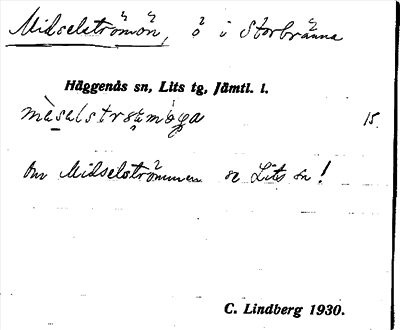 Midselströmön, ö i Storbränna
Häggenås sn, Lits tg, Jämtl. l.
15
Om Midselströmmen se Lits sn!
C. Lindberg 1930.